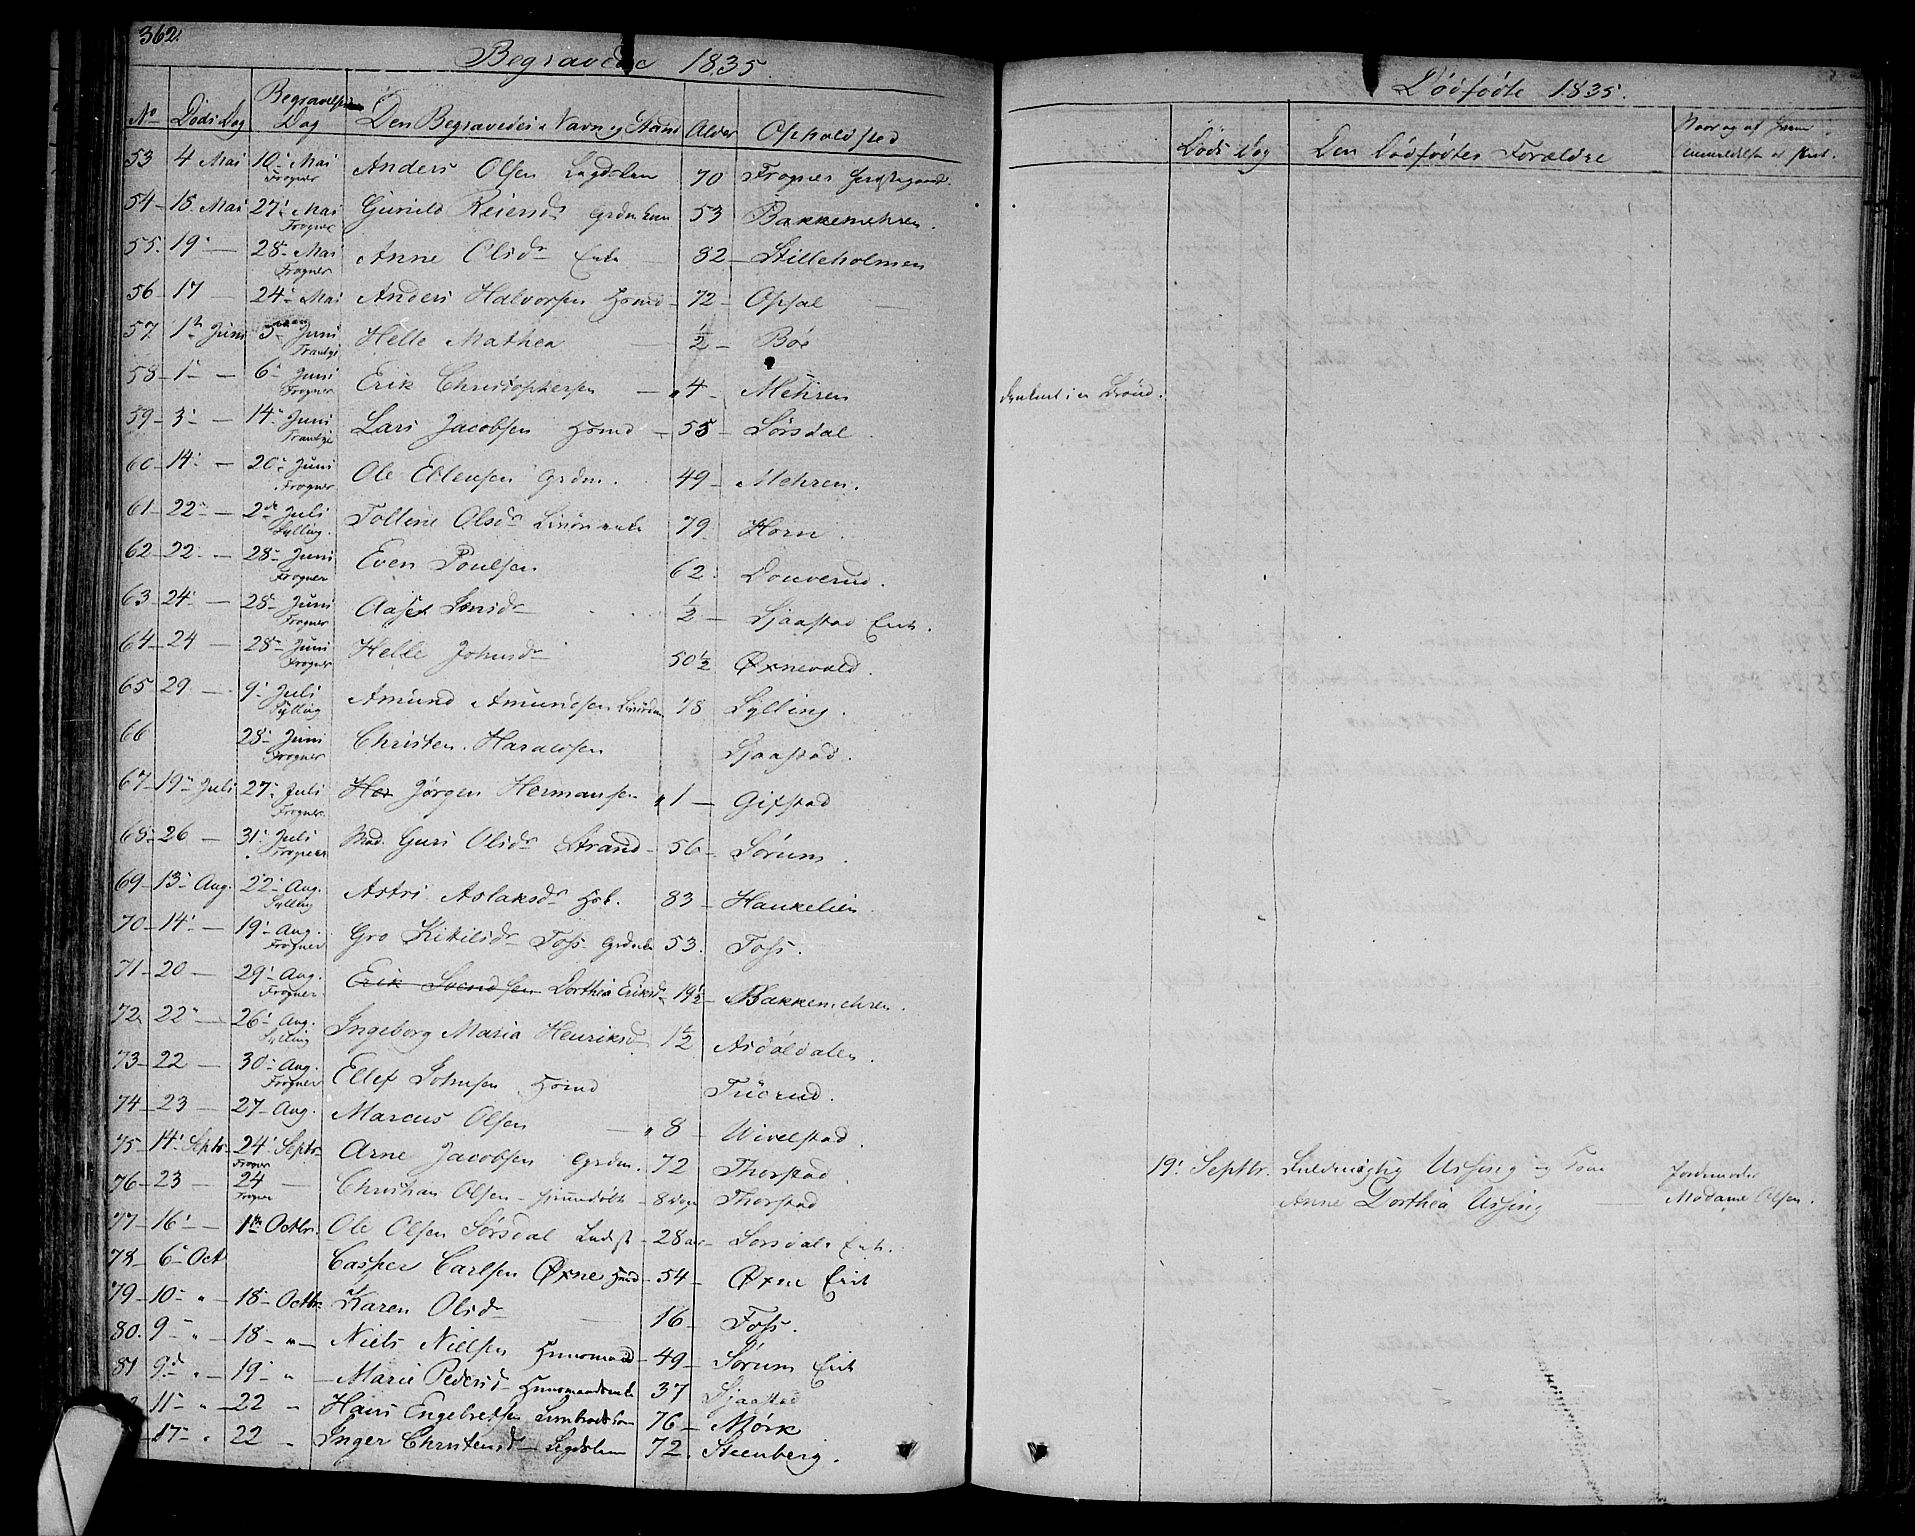 362.
Begravede 1835
No Døds Dag Begravelses Dag Den Begravedes Navn og Stand Alder Opholdsted
53 4 Mai 10 Mai Frogner Anders Olsen Lægdslem 70 Frogner
54 15. Mai 27 Mai Frogner Gunild Reiersd 53 Bakkemehren.
55. 19 — 28 Mai Frogner Anne Olsdr Enke 82 Stilleholmen
56 17 — 24 Mai Anders Halvorsen Hsmd 72 Opsal
57 1 Juni 5 Juni Tranbye Helle Mathea 1/2 Bøe
58 1 — 6 Juni Frogner Erik Christophersen 4 Mehren
59 3 — 14 Juni Tranbye Lars Jacobsen Hsmd 55 Sørsdal
60 14 — 20 Juni Frogner Ole Ellensen Grdm. 49 Mehren.
61 22 — 2de Juli Sylling. Tolline Olsdr 79 Horn.
62 22 — 28 Juni Frogner Even Poulsen 62 Douverud.
63 24 — 28 Juni Frogner Aase 1/2 Sjaastad Eie.
64 24 28 Juni Frogner Helle Johnsdr 50 1/2 Øxnevald.
65 29 — 9 Juli Sylling Amund Amundsen 78 Sylling.
66 28 Juni Frogner Christen Haraldsen Sjaastad.
67 19 Juli 27 Juli Frogner Her Jørgen Hermansen 1 — Gifstad
68 26 — 31 Juli Frogner Mad. Guri Olsdr Strand 56 Sørum.
69 13 Aug. 22 Aug. Sylling Astri Aslaksdr 83 Haukelien
70 14 — 19 Aug. Frogner Gro Kittilsdr Foss 53. Foss.
71 20 — 29 Aug. Frogner Erik Svendsen Dorthea Eriksd 19 1/2 Bakkemehren.
72 22 — 26 Aug. Sylling Ingeborg Maria Henriksd 1 1/2 Asdøldalen.
73 22 — 30 Aug. Frogner Ellef Johnsen Hsmd Tuerud.
74 23 — 27 Aug. Marcus Olsen 8 Wivelstad.
75 14 Septr 24 Septr Frogner Arne Jacobsen Grdm. 72 Thorstad.
76 23 — 24 — Frogner Christian Olsen 8 Dage Thorstad
77 16 — 1 Octbr. Ole Olsen Sørsdal 28 aar Sørsdal
78 6 Oct Casper Carlsen Øxne Hsmd 54 Øxne Eie
79 10 " 18 Octbr Karen Olsdr 16 Foss.
80. 9 " 18 " Niels Nielsen Huusmand 49 Sørum Eie
81 9 " 19 " Marie Pedersd Huusmandsenke 37 Sjaastad
11 " 22 " Hans Engebretsen 76 Mørk
17 " 22 " Inger Christensd Lægdslem 72. Steenberg.
Dødfødte 1835.
Døds Dag Den Dødfødtes Forældre Naar og af hvem Anmeldelse er skeet.
druknet i en Brønd.
19 Septbr. Uhssing og Kone Jordemoder
Anne Dorthea Uhssing Madame Olsen.